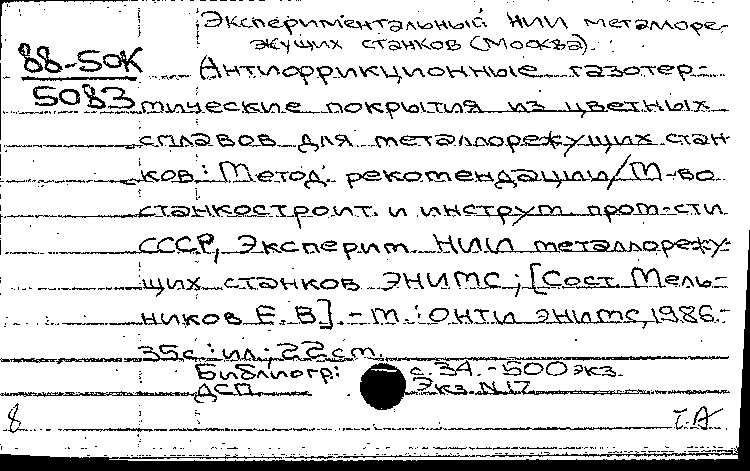 Экспериментальный НИИ металлоре-
жущих станков (Москва).
88-50К
5083
Антифрикционные газотер-
мические покрытия из цветных
сплавов для металлорежущих стан
ков: Метод. рекомендации/М-во
станкостроит. и инструм. пром-сти
СССР, Эксперим. НИИ металлорежу-
щих станков ЭНИМС; [Сост. Мель-
ников Е. В]. - М.: ОНТИ ЭНИМС, 1986.-
35с.: ил.; 22 см.
Библиогр: с. 34. - 500 экз.
ДСП Экз. N 17
8 Т.А